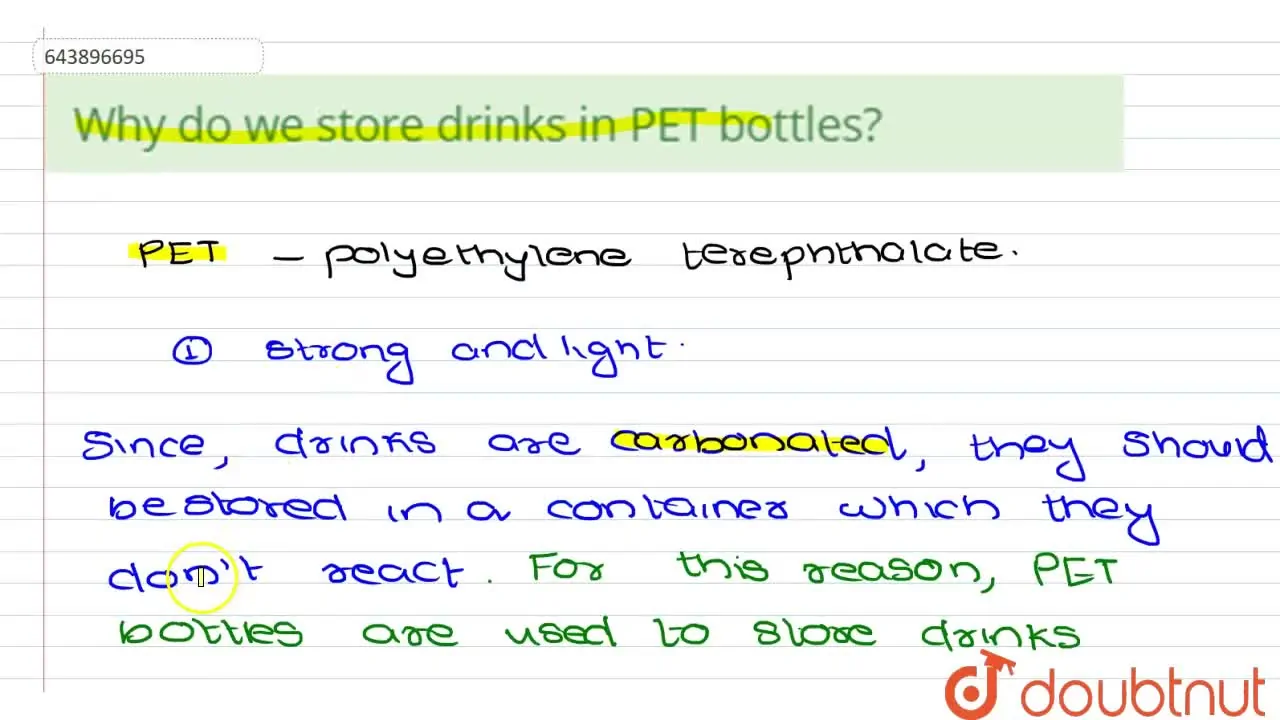 643896695
Why do we store drinks in PET bottles?
PET – polyethylene terephthalate.
① strong and light.
Since, drinks are carbonated, they should
be stored in a container which they
don't react. For this reason, PET
bottles are used to store drinks
doubtnut